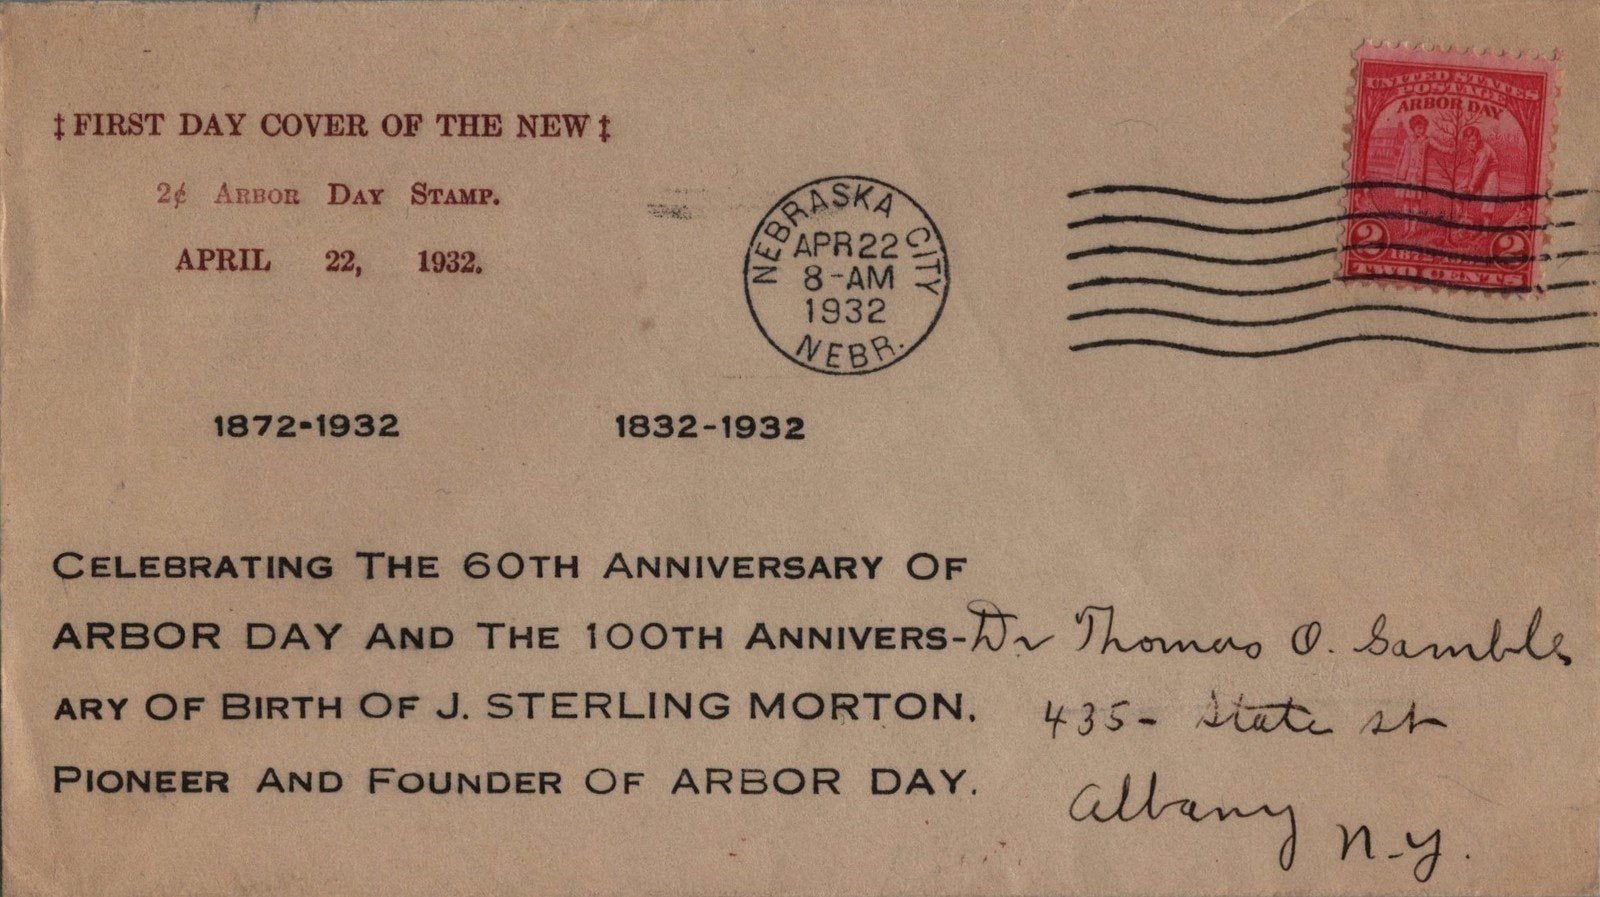 ‡ FIRST DAY COVER OF THE NEW ‡
2¢ ARBOR DAY STAMP.
APRIL 22, 1932.
NEBRASKA CITY
APR 22
8-AM
1932
NEBR.
UNITED STATES
POSTAGE
ARBOR DAY
2 2
TWO CENTS
1872-1932 1832-1932
CELEBRATING THE 60TH ANNIVERSARY OF
ARBOR DAY AND THE 100TH ANNIVERS-
ARY OF BIRTH OF J. STERLING MORTON,
PIONEER AND FOUNDER OF ARBOR DAY.
Dr Thomas O. Gamble
435- State st
Albany
N-Y.